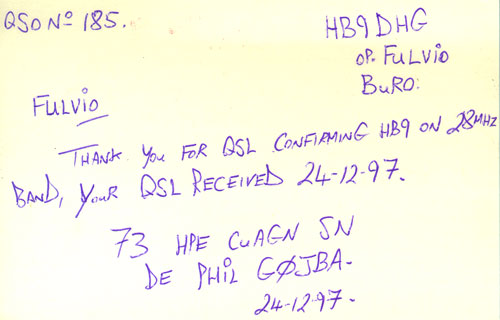 QSO Nº 185.
HB9DHG
OP. FULViO
BURO.
FULViO
THANK YOU FOR QSL CONFIRMING HB9 ON 28MHZ
BAND, YOUR QSL RECEIVED 24-12-97.
73 HPE CUAGN SN
DE PHIL GØJBA-
24-12-97.